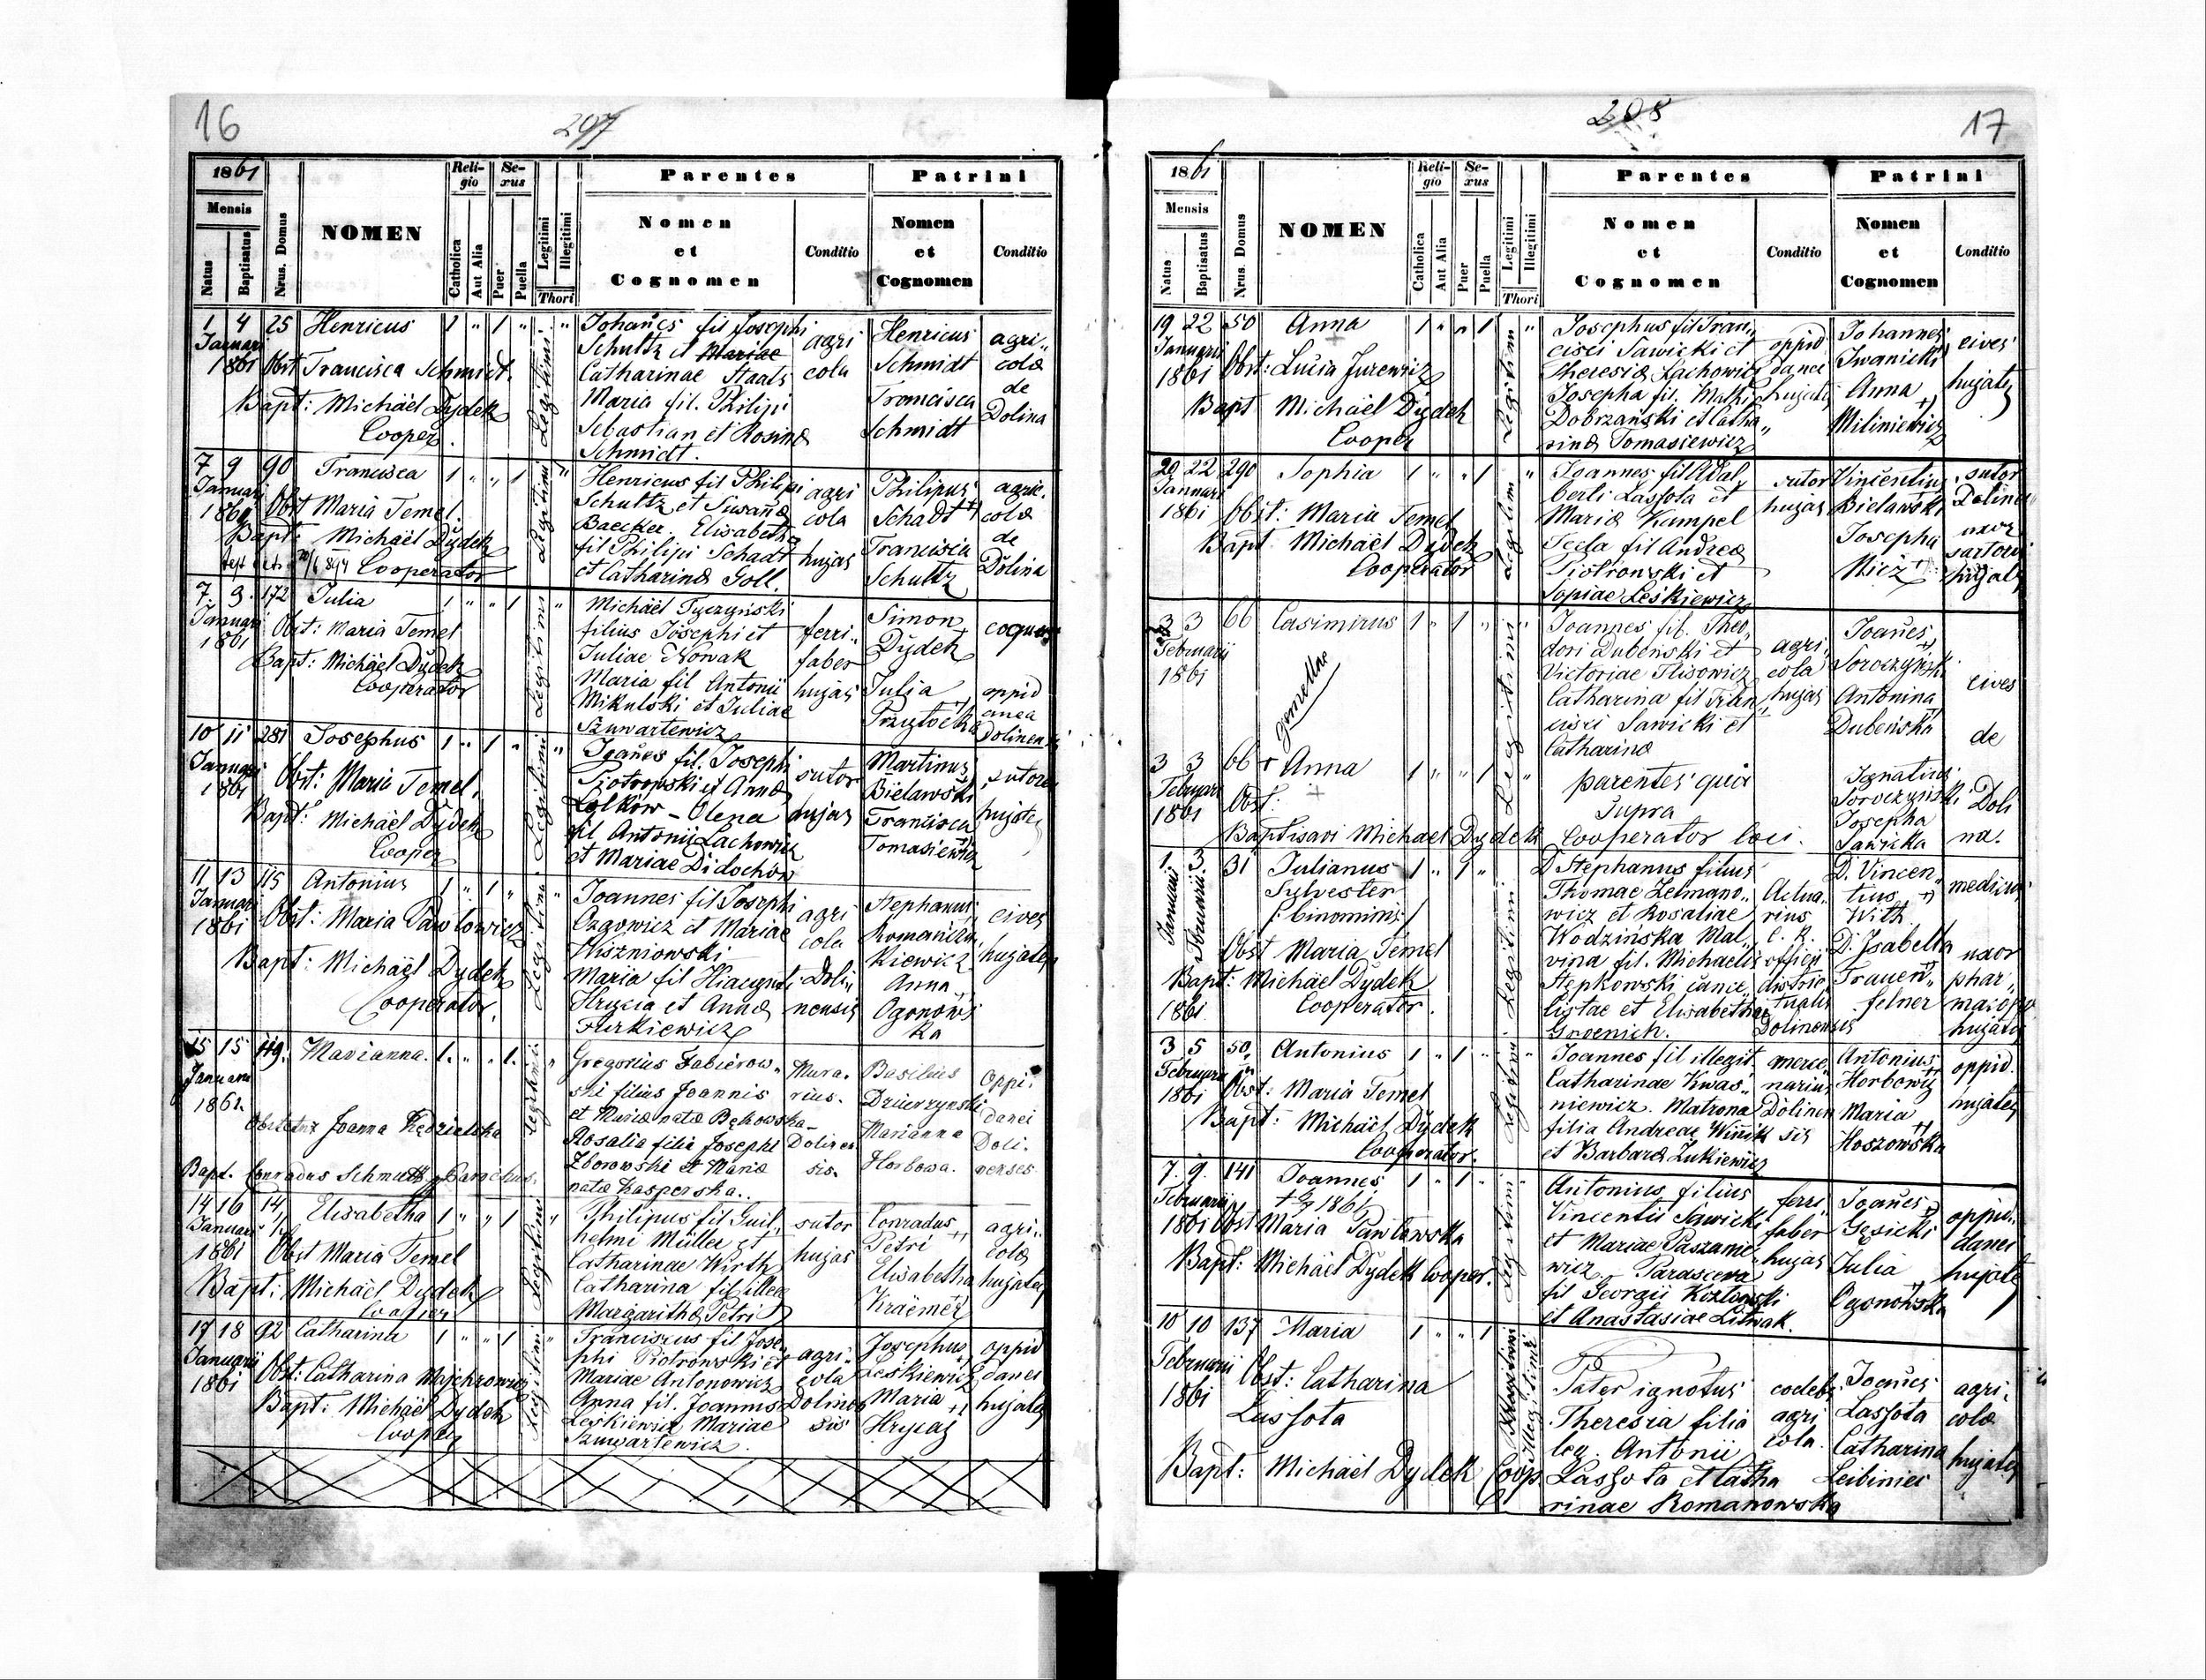 16
297
1861
Mensis
Natus
Baptisatus
Nrus. Domus
NOMEN
Reli-
gio
Catholica
Aut Alia
Se-
xus
Puer
Puella
Legitimi
Illegitimi
Thori
Parentes
Nomen
et
Cognomen
Conditio
Patrini
Nomen
et
Cognomen
Conditio
1 4 25 Henricus 1 " 1 " "
Januari
1861 Obst Francisca Schmidt.
Bapt: Michaël Dydek
Cooper.
Legitimi
Johañes fil Josephi
Schultz et Mariae
Catharinae Staals
Maria fil. Philipi
Sebastian et Rosinæ
Schmidt.
agri
cola
Henricus
Schmidt
Francisca
Schmidt
agri„
colæ
de
Dolina
7 9 90 Francisca 1 " " 1 "
Januari
1861 Obst Maria Temel.
Bapt: Michaël Dydek
Cooperator
Legitimi
Henricus fil Philipi
Schultz et Susañæ
Baecker. Elisabetha
fil Philipi Schadt
et Catharinæ Goll.
agri
cola
hujas
Philipus
Schadt
Francisca
Schultz
agric.
colæ
de
Dolina
7. 9. 172 Julia 1 " " 1 "
Januari
1861 Obst: Maria Temel
Bapt: Michaël Dydek
Cooperator
Legitimi
Michaël Tyczyński
filius Josephi et
Juliae Nowak
Maria fil Antonii
Mikulski et Juliae
Szuwartewicz
ferri„
faber
hujas
Simon
Dydek
Julia
Przytocka
coquus
oppid
anea
Dolinensis
10 11 281 Josephus 1 " 1 " "
Januari
1861 Obst: Maria Temel.
Bapt: Michaël Dydek
Cooper
Legitimi
Joañes fil. Josephi
Piotrowski et Annæ
Lalków - Olena
fil Antonii Lachowicz
et Mariae Didochów
sutor
hujas
Martinus
Bielawski
Francisca
Tomasiewicz
sutores
hujates
11 13 115 Antonius 1 " 1 " "
Januari
1861 Obst: Maria Pawlowicz
Bapt: Michaël Dydek
Cooperator.
Legitimi
Joannes fil Josephi
et Mariae
Hiszniowski
Maria fil Hiacynti
Hrycia et Annæ
Furkiewicz
agri
cola
Doli„
nensis
Stephanus
Romanicz„
kiewicz
Anna
Ogonows
ka
cives
hujates
15 15 119. Marianna. 1. " " 1. "
Januarii
1861.
Obstetrix Joanna Kędzielska
Bapt. Conradus Schmidt Parochus.
Legitimi
Gregorius Fabierow„
ski filius Joannis
et Mariæ natæ Bękowska
Rosalia filia Josephi
Zborowski et Mariæ
natæ Kasperska.
Mura.
rius.
Dolinen
sis.
Basilius
Dzierzynski
Marianna
Horbowa.
Oppi„
danei
Doli.
nenses
14 16 14/1 Elisabetha 1 " " 1 "
Januari
1861 Obst Maria Temel
Bapt: Michaël Dydek
Cooper
Legitimi
Philipus fil Guil„
helmi Müller et
Catharinae Wirth
Catharina fil illeg
Margarithæ Petri
sutor
hujas
Conradus
Petri
Elisabetha
Kraemer
agri„
colæ
hujates
17 18 92 Catharina 1 " " 1 "
Januarii
1861 Obst: Catharina Majchrowicz
Bapt: Michaël Dydek
Cooper
Legitimi
Franciscus fil Jose„
phi Piotrowski et
Mariae Antonowicz
Anna fil. Joannis
Leskiewicz Mariae
Szuwartewicz.
agri„
cola
Dolinen
sis
Josephus
Leskiewicz
Maria
Hrycaj
oppid
danei
hujates
298
17
1861
Mensis
Natus
Baptisatus
Nrus. Domus
NOMEN
Reli-
gio
Catholica
Aut Alia
Se-
xus
Puer
Puella
Legitimi
Illegitimi
Thori
Parentes
Nomen
et
Cognomen
Conditio
Patrini
Nomen
et
Cognomen
Conditio
19 22 50 Anna 1 " " 1 "
Januarii
1861 Obst: Lucia Jurewicz
Bapt Michaël Dydek
Cooper
Legitimi
Josephus fil Fran„
cisci Sawicki et
Theresiæ Lachowicz
Josepha fil. Mathiæ
Dobrzański et Catha„
rinæ Tomasiewicz
oppid
danei
hujates
Johannes
Iwanicki
Anna
Miliniewicz
cives
hujates
20 22 290 Sophia 1 " " 1 "
Januari
1861 Obst: Maria Temel
Bapt Michaël Dydek
Cooperator
Legitimi
Joannes fil Adal„
berti Lassota et
Mariæ Kumpel
Tecla fil Andreæ
Piotrowski et
Sopiae Leśkiewicz
sutor
hujas
Vincentius
Bielawski
Josepha
Nicz
sutor
Dolinæ
uxor
sartoris
hujates
3 3 66 Casimirus 1 " 1 " "
Februarii
1861
gemellae
Legitimi
Joannes fil. Theo„
dori Dubeński et
Victoriae Ilisowicz
Catharina fil Fran„
cisci Sawicki et
Catharinæ
agri„
cola
hujas
Joañes
Soroczyński
Antonina
Dubeńska
cives
de
3 3 66 + Anna 1 " " 1 "
Februari
1861 Obst:
Baptisavi Michael Dydek Cooperator loci.
parentes qui
supra
Ignatius
Soroczyński
Josepha
Sawicka
Doli
na.
1. 3. 31 Julianus 1 " 1 "
Januarii
Februarii
Sylvester
/:binominis:/
Obst Maria Temel
Bapt: Michaël Dydek
1861 Cooperator.
Legitimi
D Stephanus filius
Thomae Zelmano„
wicz et Rosaliae
Wodzińska Mal„
vina fil. Michaelis
Stepkowski cance„
listae et Elisabethae
Groenich.
Actua„
rius
C. R.
officii
distric„
tualis
Dolinensis
D. Vincen„
tius
With
D. Isabella
Frauen„
felner
medicus
uxor
phar„
macopo
hujates
3 5 50 Antonius 1 " 1 " "
Februarii
1861 Obst: Maria Temel
Bapt: Michaël Dydek
Cooperator.
Legitimi
Joannes fil illegit.
Catharinae Kwas„
niewicz. Matrona
filia Andreae Wiñik
et Barbaræ Zukiewicz
merce„
narius
Dolinen
sis
Antonius
Horbowy
Maria
Hoszowska
oppid.
hujates
7. 9. 141 Joannes 1 " 1 " "
Februarii
1861 Obst Maria Pawlowska
Bapt: Michaël Dydek Cooper.
Legitimi
Antonius filius
Vincentii Sawicki
et Mariae Paszanie„
wicz Parasceva
fil Georgii Kozlowski
et Anastasiae Litwak.
ferri„
faber
hujas
Joañes
Gęsicki
Julia
Ogonowska
oppid„
danei
hujates
10 10 137 Maria 1 " " 1
Februarii
1861
Obst: Catharina
Lassota
Bapt: Michaël Dydek Coop
Illegitimi
Pater ignotus
Theresia filia
leg. Antonii
Lassota et Catha
rinae Romanowska
agri
cola.
Joañes
Lassota
Catharina
Leibinier
agri„
colæ
hujates